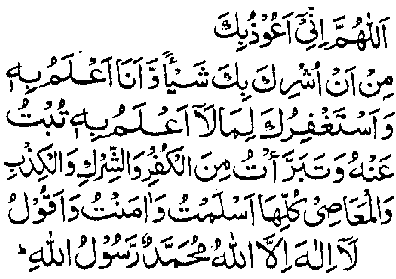 اَللّٰهُمَّ اِنِّیْۤ اَعُوْذُ بِكَ
مِنْ اَنْ اُشْرِكَ بِكَ شَيْأً وَّ اَنَا اَعْلَمُ بِهٖ
وَ اَسْتَغْفِرُكَ لِمَا لَاۤ اَعْلَمُ بِهٖ تُبْتُ
عَنْهُ وَ تَبَرَّأْتُ مِنَ الْكُفْرِ وَ الشِّرْكِ وَ الْكِذْبِ
وَ الْمَعَاصِیْ كُلِّهَا اَسْلَمْتُ وَ اٰمَنْتُ وَ اَقُوْلُ
لَاۤ اِلٰهَ اِلَّا اللّٰهُ مُحَمَّدٌ رَّسُوْلُ اللّٰهِ ؕ